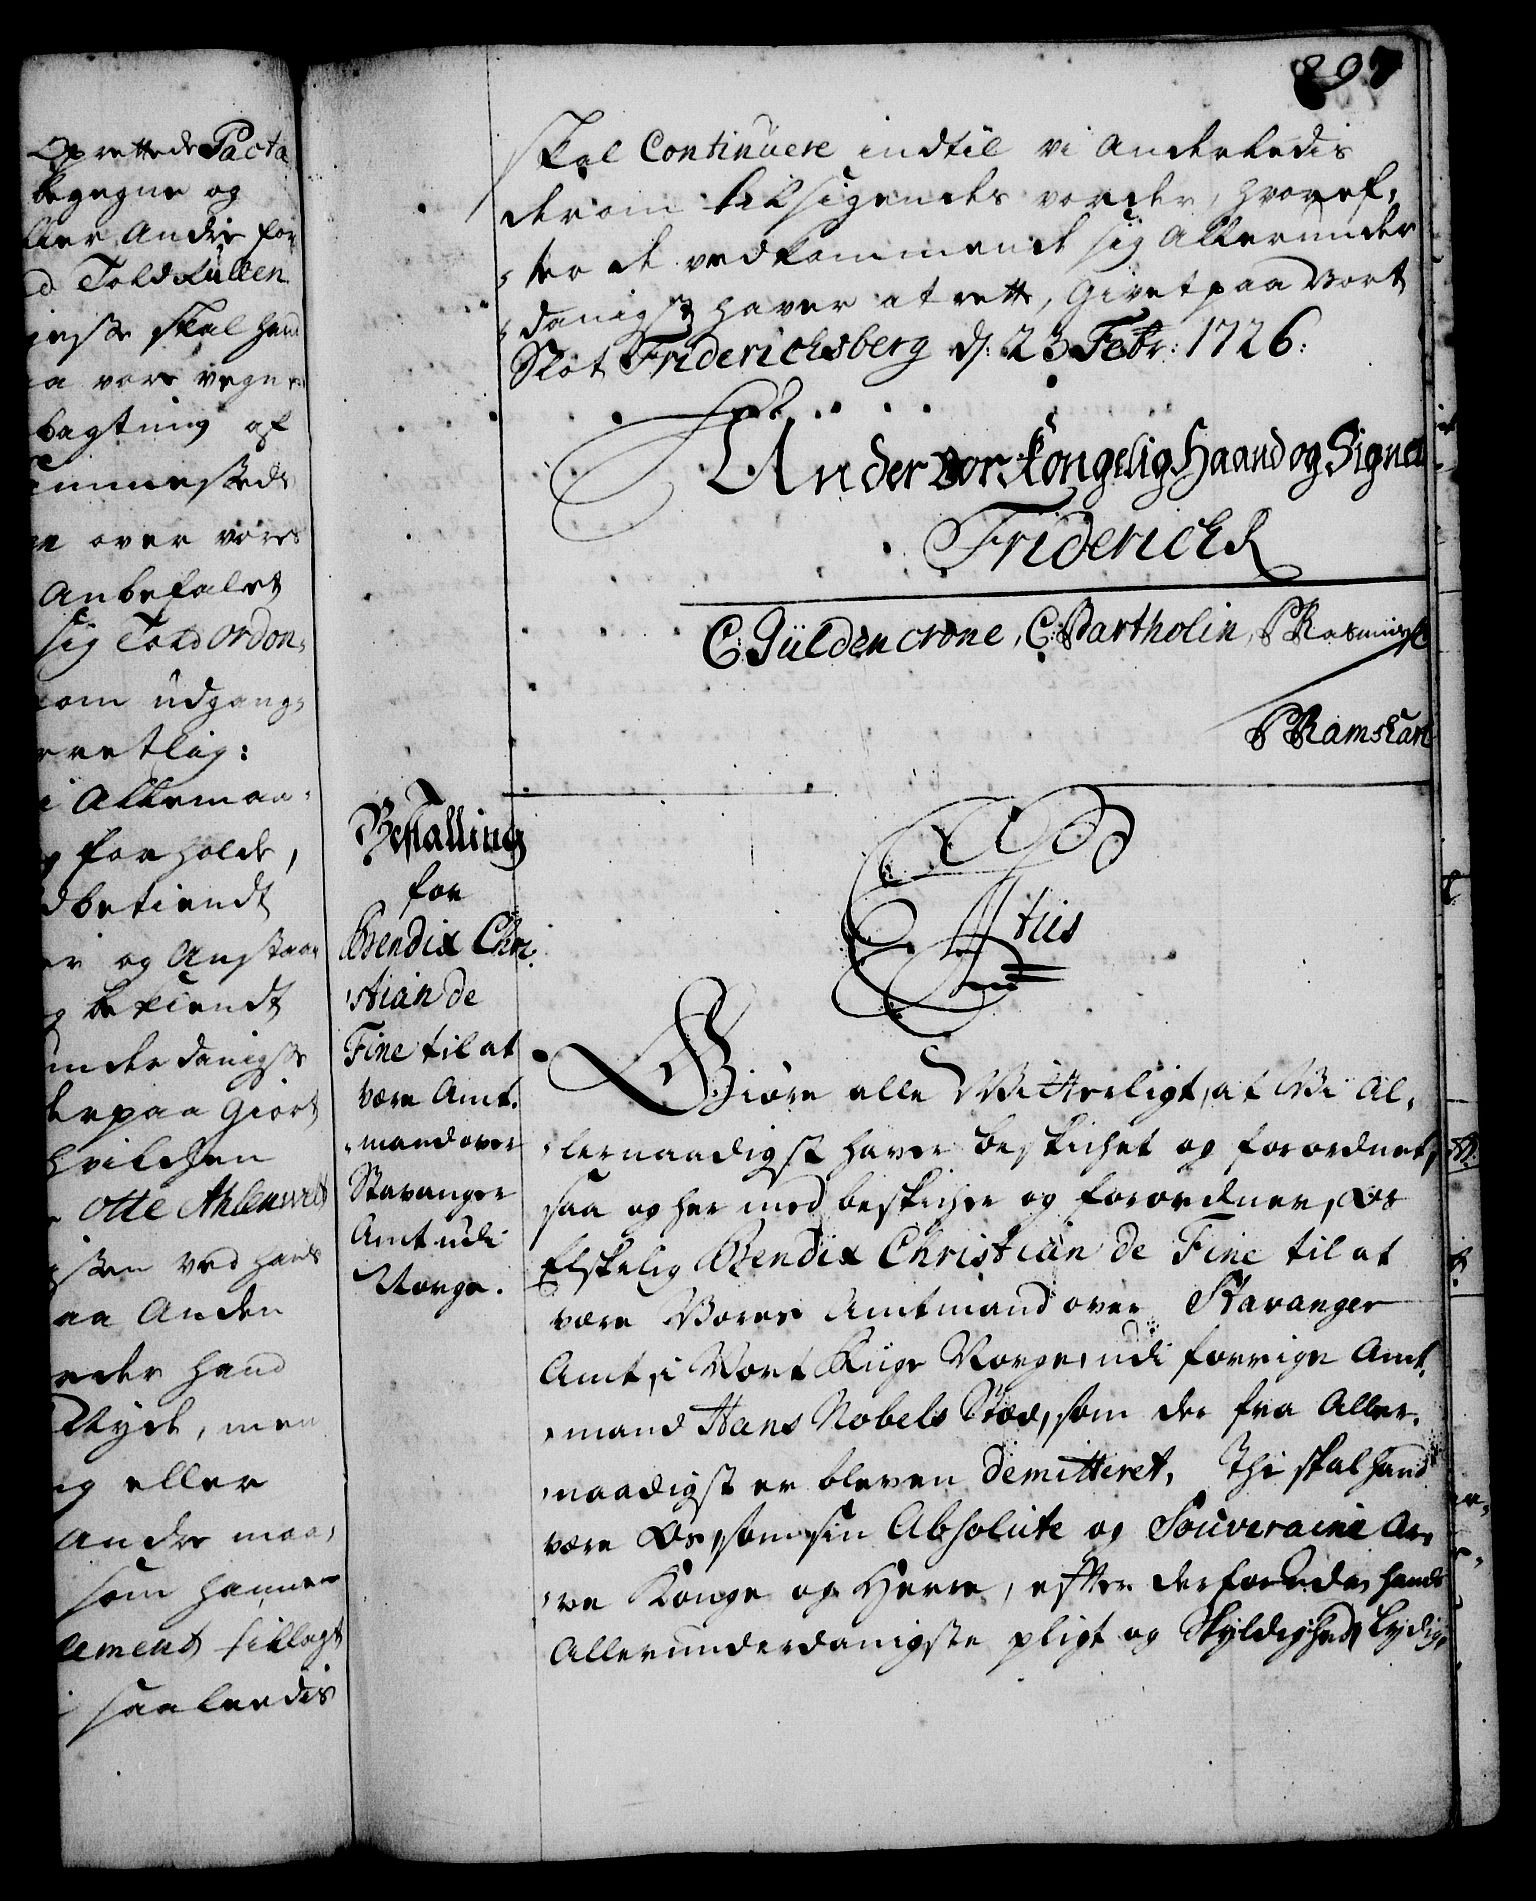 Oprettede Pacta
begegne og
ller Andre for
d Told Rullen
ieste skal hand
a vore vegne
bagtning af
immestede
over vores
Anbefalet
sig Told Ordon,
som udgang,
rretlig:
i Allemaa,
forholde,
dbetiendt
er og Anstaar
g bekiendt
underdanigste
derpaa Giort
hvilchen
Otte Ahlenvelt
ved hans
aa Anden
eder hand
Nyde, men
ig eller
Andre maa,
som hannem
lement tillagt
saaleedis
297
skal Continuere indtil vi Anderledis
derom tilsigendes vorder, hvoref,
,ter de vedkommende sig Allerunder
,danigst haver at rette, Givet paa Vort
Slot Friderichsberg d: 23 Febr: 1726:
Under vor Kongelig Haand og Signet
Friderich R
C. Güldencrone, C. Bartholin,
P Ramshart
Bestalling
for
Bendix Chri,
,stian de
Fine til at
være Amt,
,mand over
Stavanger
Amt udi
Norge.
Giøre alle Vitterligt, at Vi Al,
,lernaadigst haver beskichet og forordnet,
saa og her med beskicher og forordner, Os
Elskelig Bendix Christian de Fine til at
være Vores Amtmand over Stavanger
Amt, i Vort Riige Norge, udi forrige Amt,
,mand Hans Nobels Stæd, som der fra Aller,
,naadigst er bleven demitteret, Thi skal hand
være Os, som sin Absolute og Souveraine Ar,
,ve Konge og Herre, efter derforuden hands
Allerunderdanigste pligt og Skyldighed, Lydig,